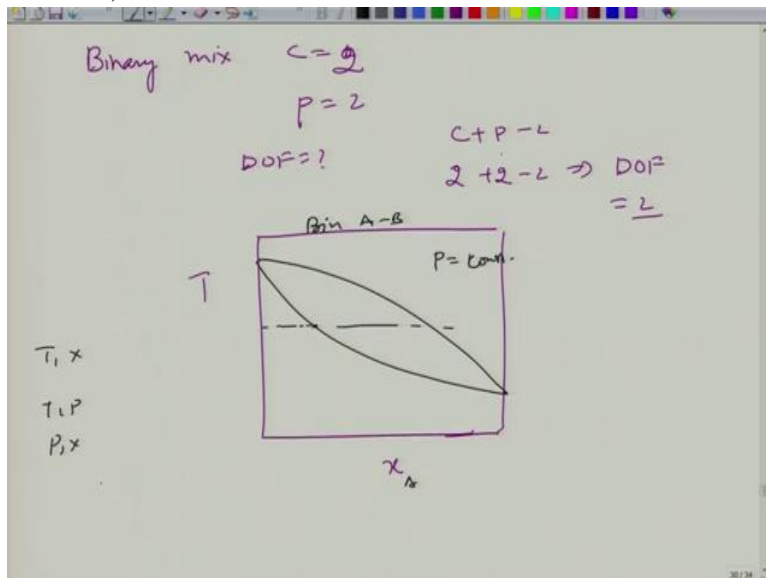 Binary mix C=2
P=2
DOF=?
C+P-2
2+2-2 ⇒ DOF
=2
Bin A-B
P=con.
T
T, x
T, P
P, x
x_A
30/34